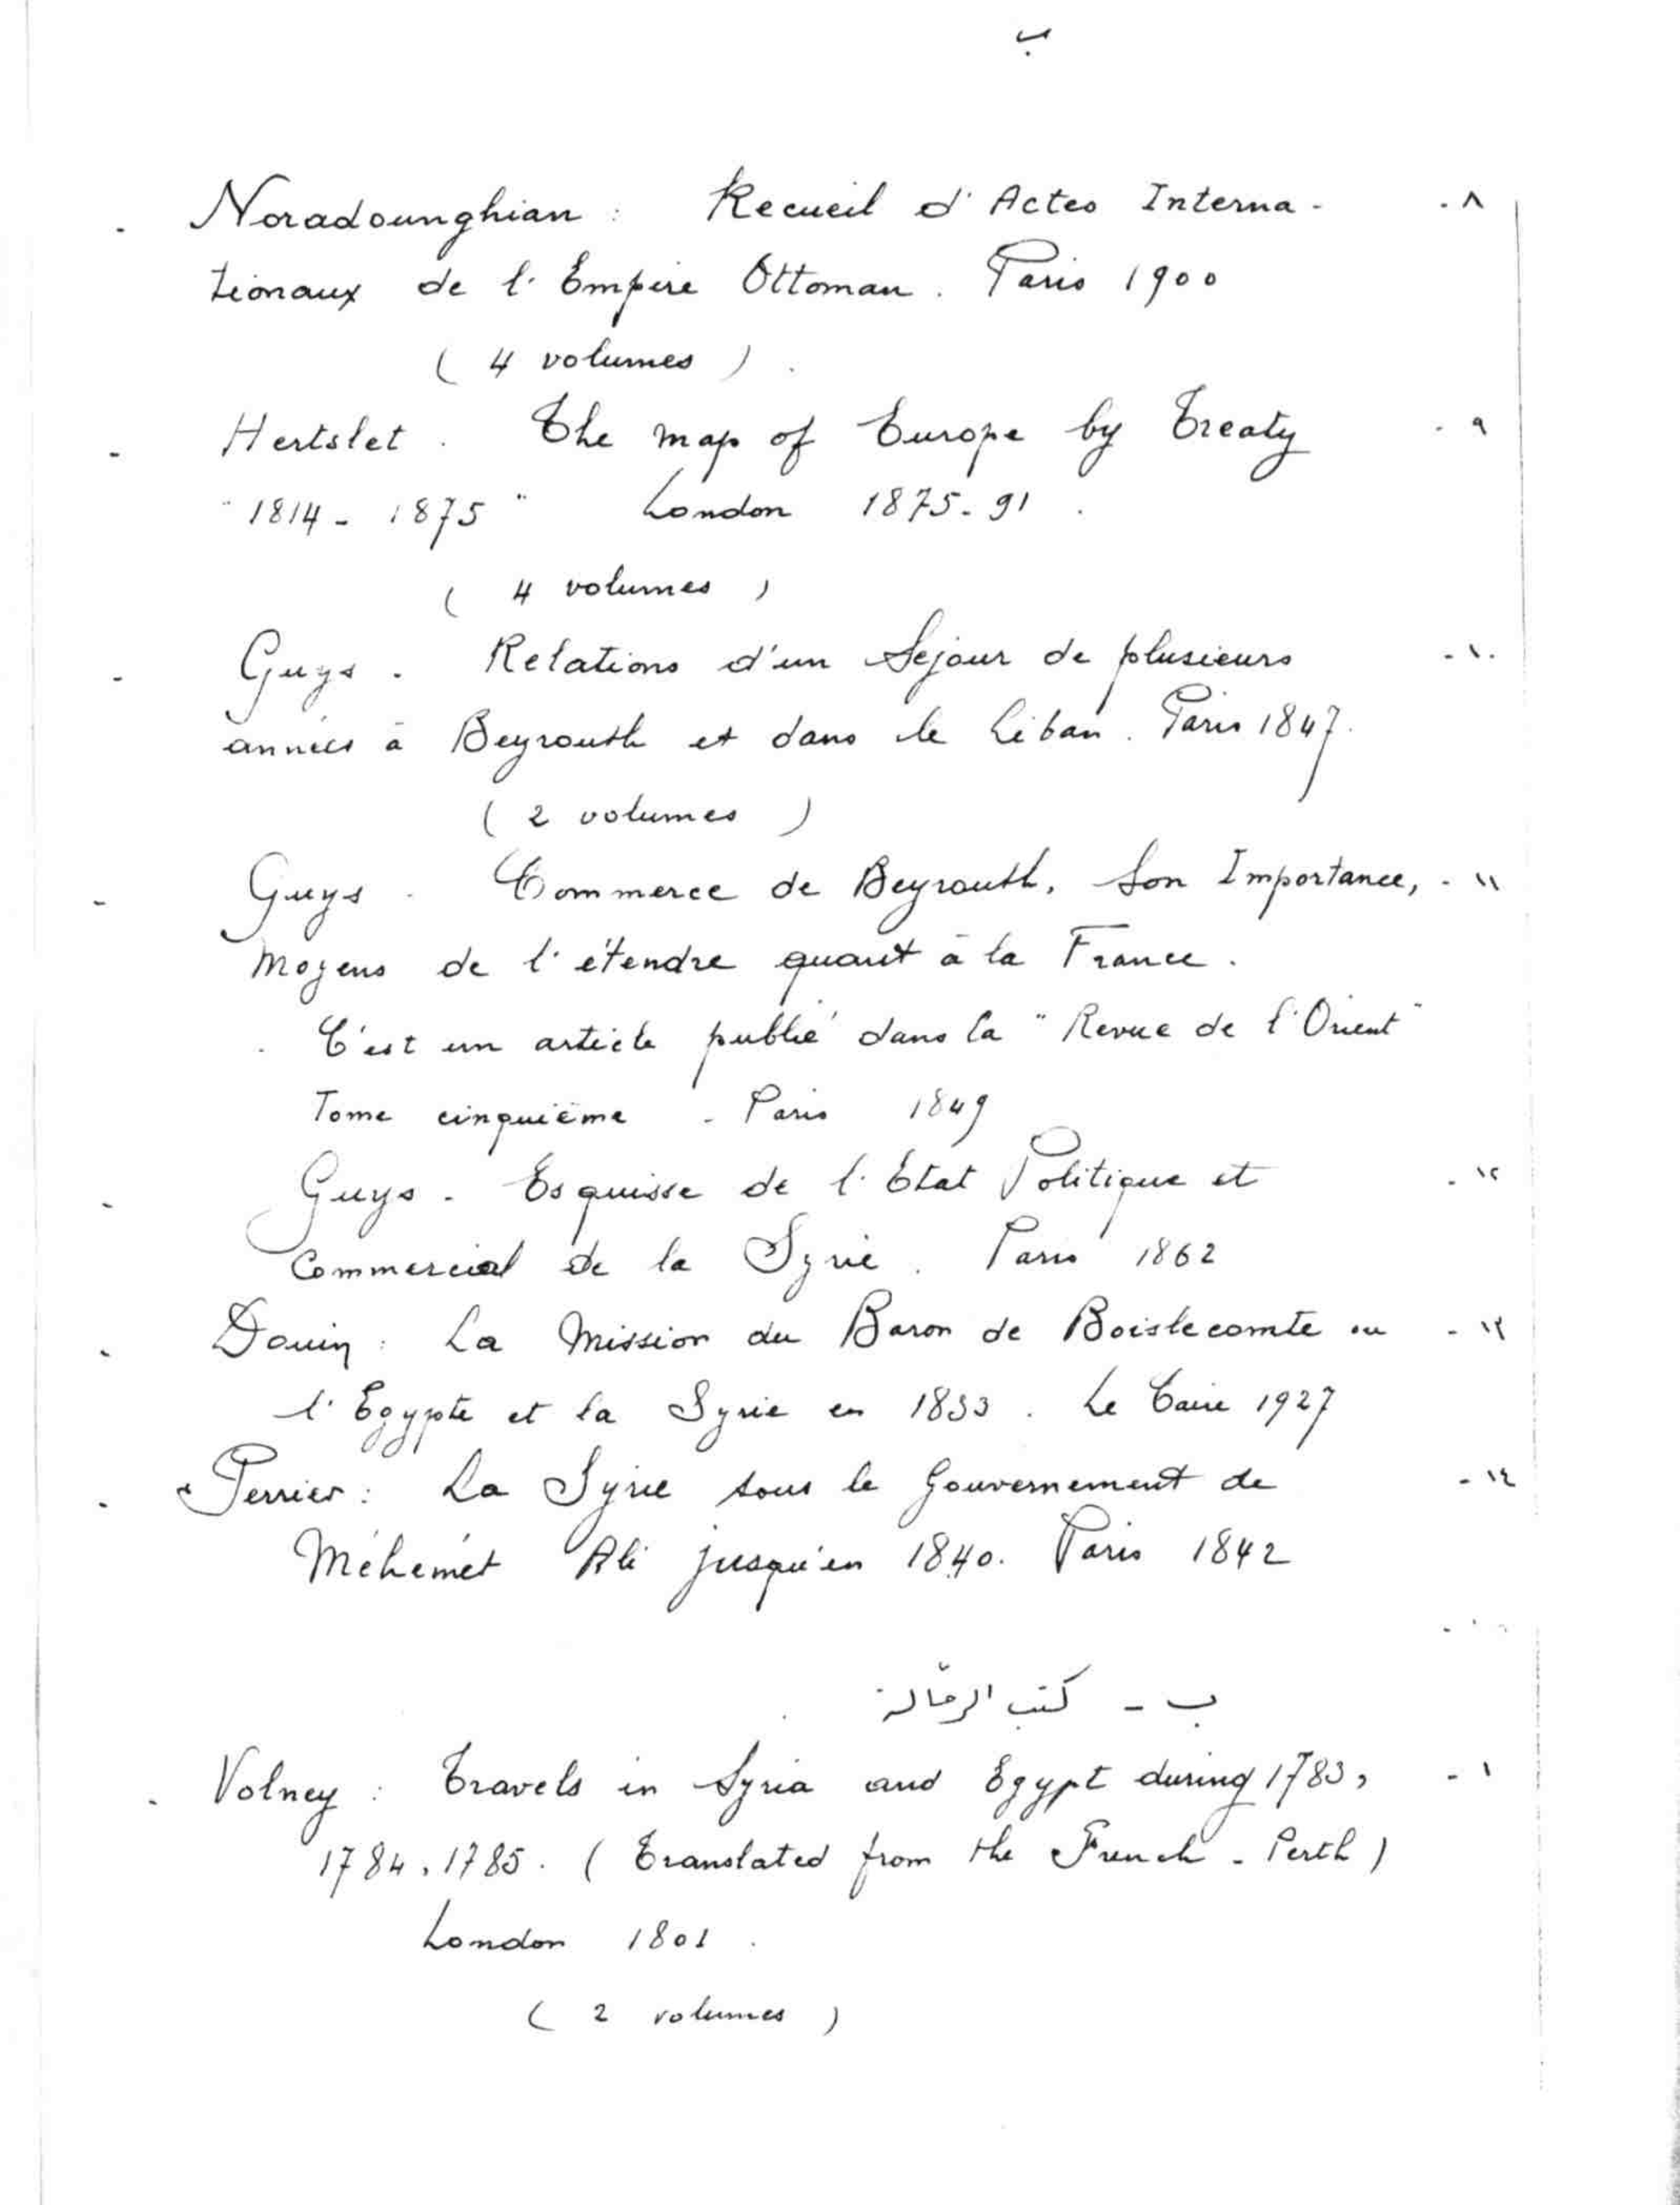 ب
Noradounghian : Recueil d' Actes Interna - ٨ -
tionaux de l' Empire Ottoman . Paris 1900
( 4 volumes ) .
Hertslet . The map of Europe by Treaty ٩ -
" 1814 - 1875 " London 1875-91 .
( 4 volumes )
Guys . Relations d'un Sejour de plusieurs ١٠ -
années à Beyrouth et dans le Liban . Paris 1847.
( 2 volumes )
Guys . Commerce de Beyrouth, Son Importance, ١١ -
Moyens de l' étendre quant à la France .
C'est un article publié dans la " Revue de l'Orient "
Tome cinquième - Paris 1849
Guys - Esquisse de l' Etat Politique et ١٢ -
Commercial de la Syrie . Paris 1862
Douin : La Mission du Baron de Boislecomte ou ١٣ -
l' Egypte et la Syrie en 1833 . Le Caire 1927
Perrier : La Syrie sous le Gouvernement de ١٤ -
Méhémet Ali jusqu'en 1840. Paris 1842
ب - كتب الرحّالة
Volney : Travels in Syria and Egypt during 1783, ١ -
1784, 1785. ( Translated from the French - Perth )
London 1801 .
( 2 volumes )